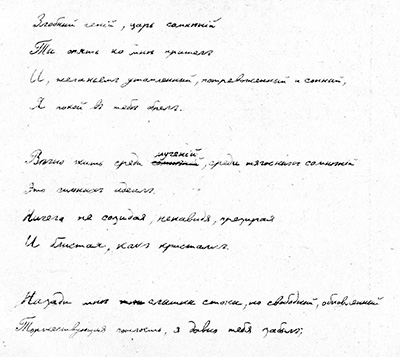 Злобный геній, царь сомнѣній
Ты опять ко мнѣ пришелъ
И, желаньемъ утомленный, потревоженный и сонный,
Я покой въ тебѣ обрелъ.
Вѣчно жить среди мученій, среди тягостныхъ сомнѣній
Это сильныхъ идеалъ
Ничего не созидая, ненавидя, презирая
И блистая, какъ кристаллъ.
Назади мнѣ слышны стоны, но свободный, обновленный
Торжествующая пошлость, я давно тебя забылъ;